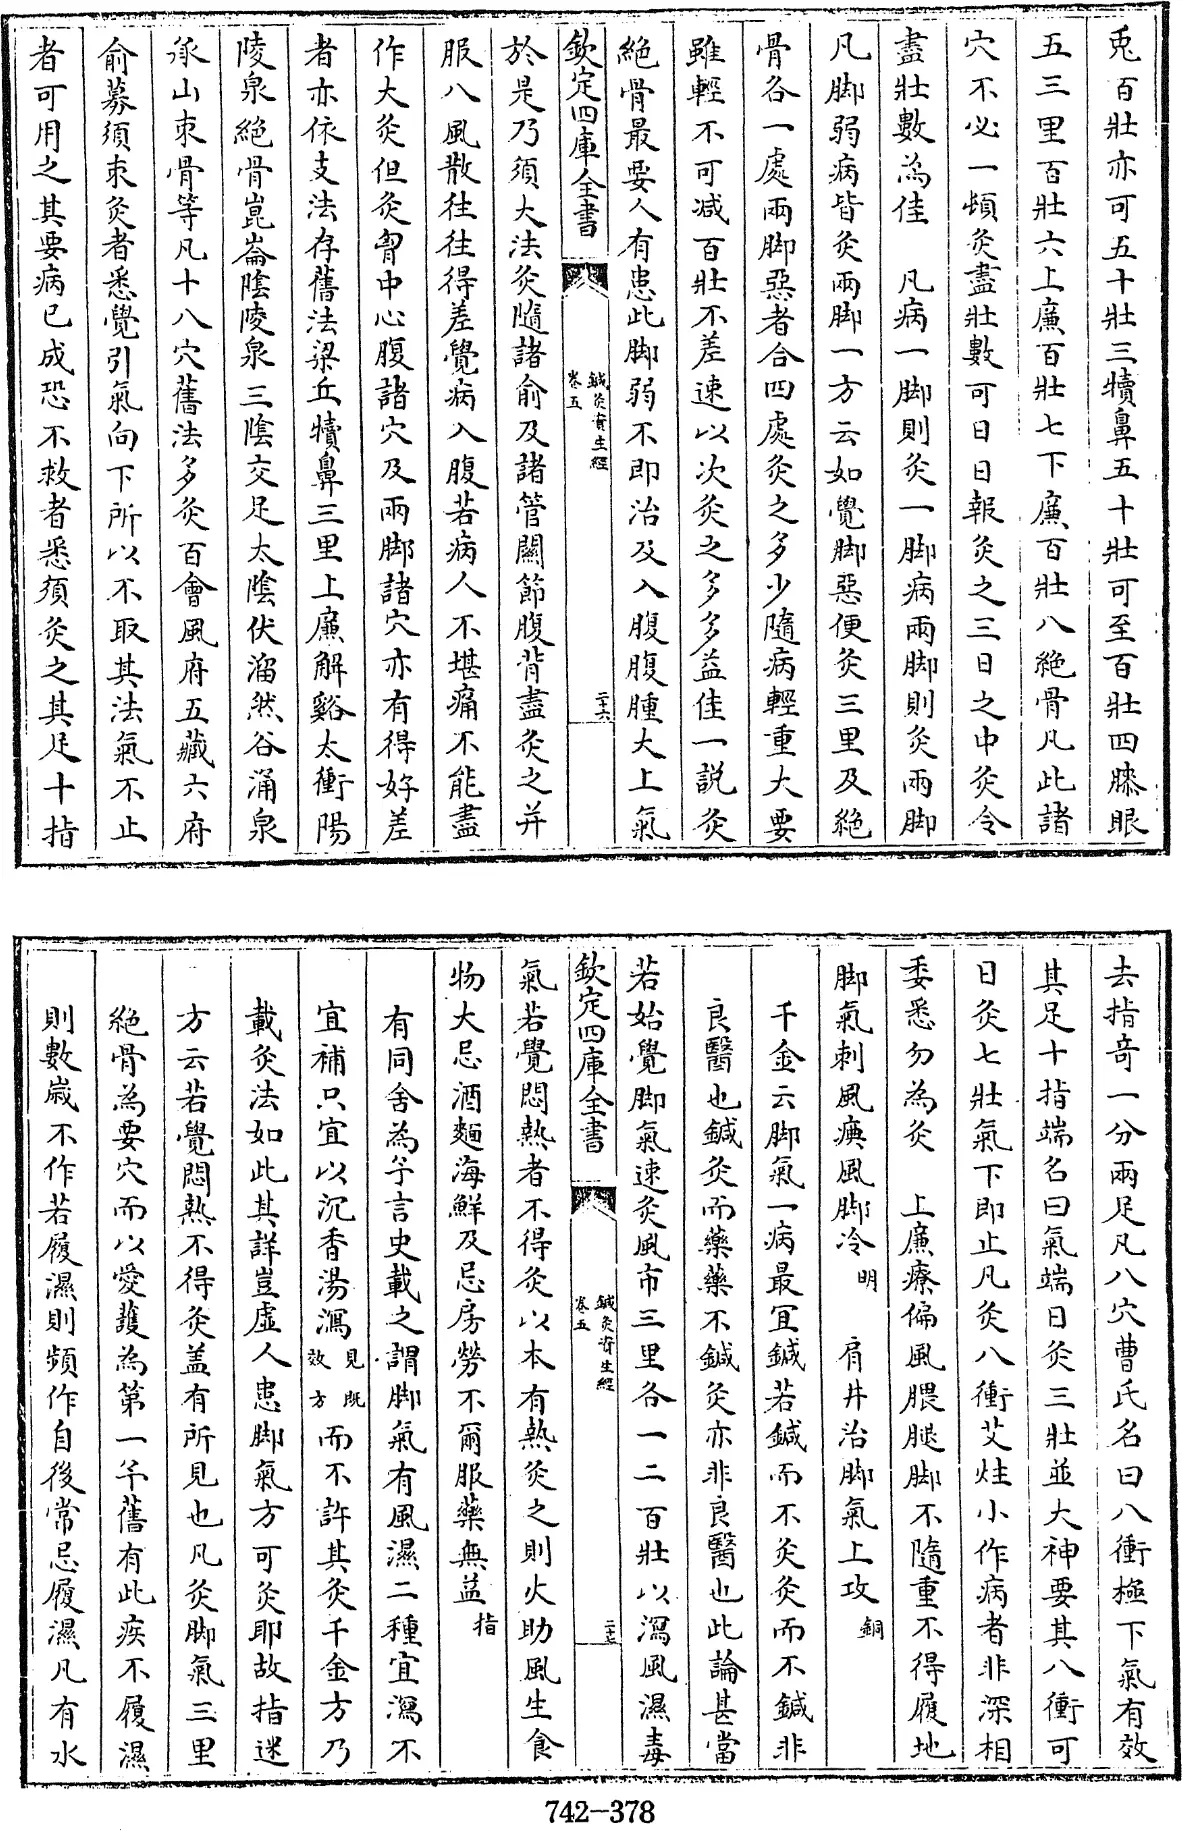 兎百壯亦可五十壯三犢鼻五十壯可至百壯四膝眼
五三里百壯六上廉百壯七下廉百壯八絶骨凡此諸
穴不必一頓灸盡壯數可日日報灸之三日之中灸令
盡壯數為佳　凡病一脚則灸一脚病兩脚則灸兩脚
凡脚弱病皆灸兩脚一方云如覺脚惡便灸三里及絶
骨各一處兩脚惡者合四處灸之多少隨病輕重大要
雖輕不可減百壯不差速以次灸之多多益佳一説灸
絶骨最要人有患此脚弱不即治及入腹腹腫大上氣
欽定四庫全書
鍼灸資生經
卷五
二十六
於是乃須大法灸隨諸俞及諸管關節腹背盡灸之并
服八風散往往得差覺病入腹若病人不堪痛不能盡
作大灸但灸胷中心腹諸穴及兩脚諸穴亦有得好差
者亦依支法存舊法梁丘犢鼻三里上廉解谿太衝陽
陵泉絶骨崑崙陰陵泉三陰交足太陰伏溜然谷涌泉
承山束骨等凡十八穴舊法多灸百會風府五藏六府
俞募須束灸者悉覺引氣向下所以不取其法氣不止
者可用之其要病已成恐不救者悉須灸之其足十指
去指竒一分兩足凡八穴曹氏名曰八衝極下氣有效
其足十指端名曰氣端日灸三壯並大神要其八衝可
日灸七壯氣下即止凡灸八衝艾炷小作病者非深相
委悉勿為灸　上廉療偏風腲腿脚不隨重不得履地
脚氣刺風㾾風脚冷明　肩井治脚氣上攻銅
千金云脚氣一病最宜鍼若鍼而不灸灸而不鍼非
良醫也鍼灸而藥藥不鍼灸亦非良醫也此論甚當
若始覺脚氣速灸風市三里各一二百壯以瀉風濕毒
欽定四庫全書
鍼灸資生經
卷五
二十七
氣若覺悶熱者不得灸以本有熱灸之則火助風生食
物大忌酒麵海鮮及忌房勞不爾服藥無益指
有同舍為予言史載之謂脚氣有風濕二種宜瀉不
宜補只宜以沉香湯瀉見既效方而不許其灸千金方乃
載灸法如此其詳豈虛人患脚氣方可灸耶故指迷
方云若覺悶熱不得灸盖有所見也凡灸脚氣三里
絶骨為要穴而以愛護為第一予舊有此疾不履濕
則數嵗不作若履濕則頻作自後常忌履濕凡有水
742-378